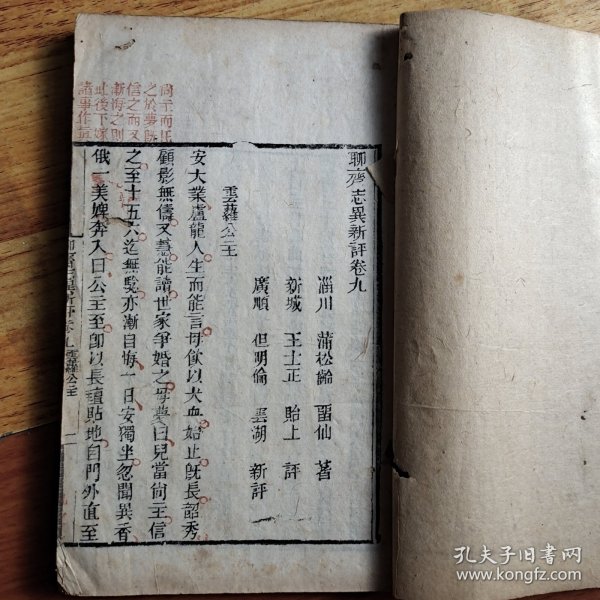 聊齋志異新評卷九
淄川 蒲松齡 留仙 著
新城 王士正 貽上 評
廣順 但明倫 雲湖 新評
雲蘿公主
安大業盧龍人生而能言母飲以犬血始止既長韶秀
顧影無儔又慧能讀世家爭婚之母夢曰兒當尚主信
之至十五六迄無驗亦漸自悔一日安獨坐忽聞異香
俄一美婢奔入曰公主至卽以長氈貼地自門外直至
尚主而托
之於夢既
信之而又
漸悔之則
此後下嫁
諸事作
雲蘿公主
一
孔夫子旧书网
www.kongfz.com